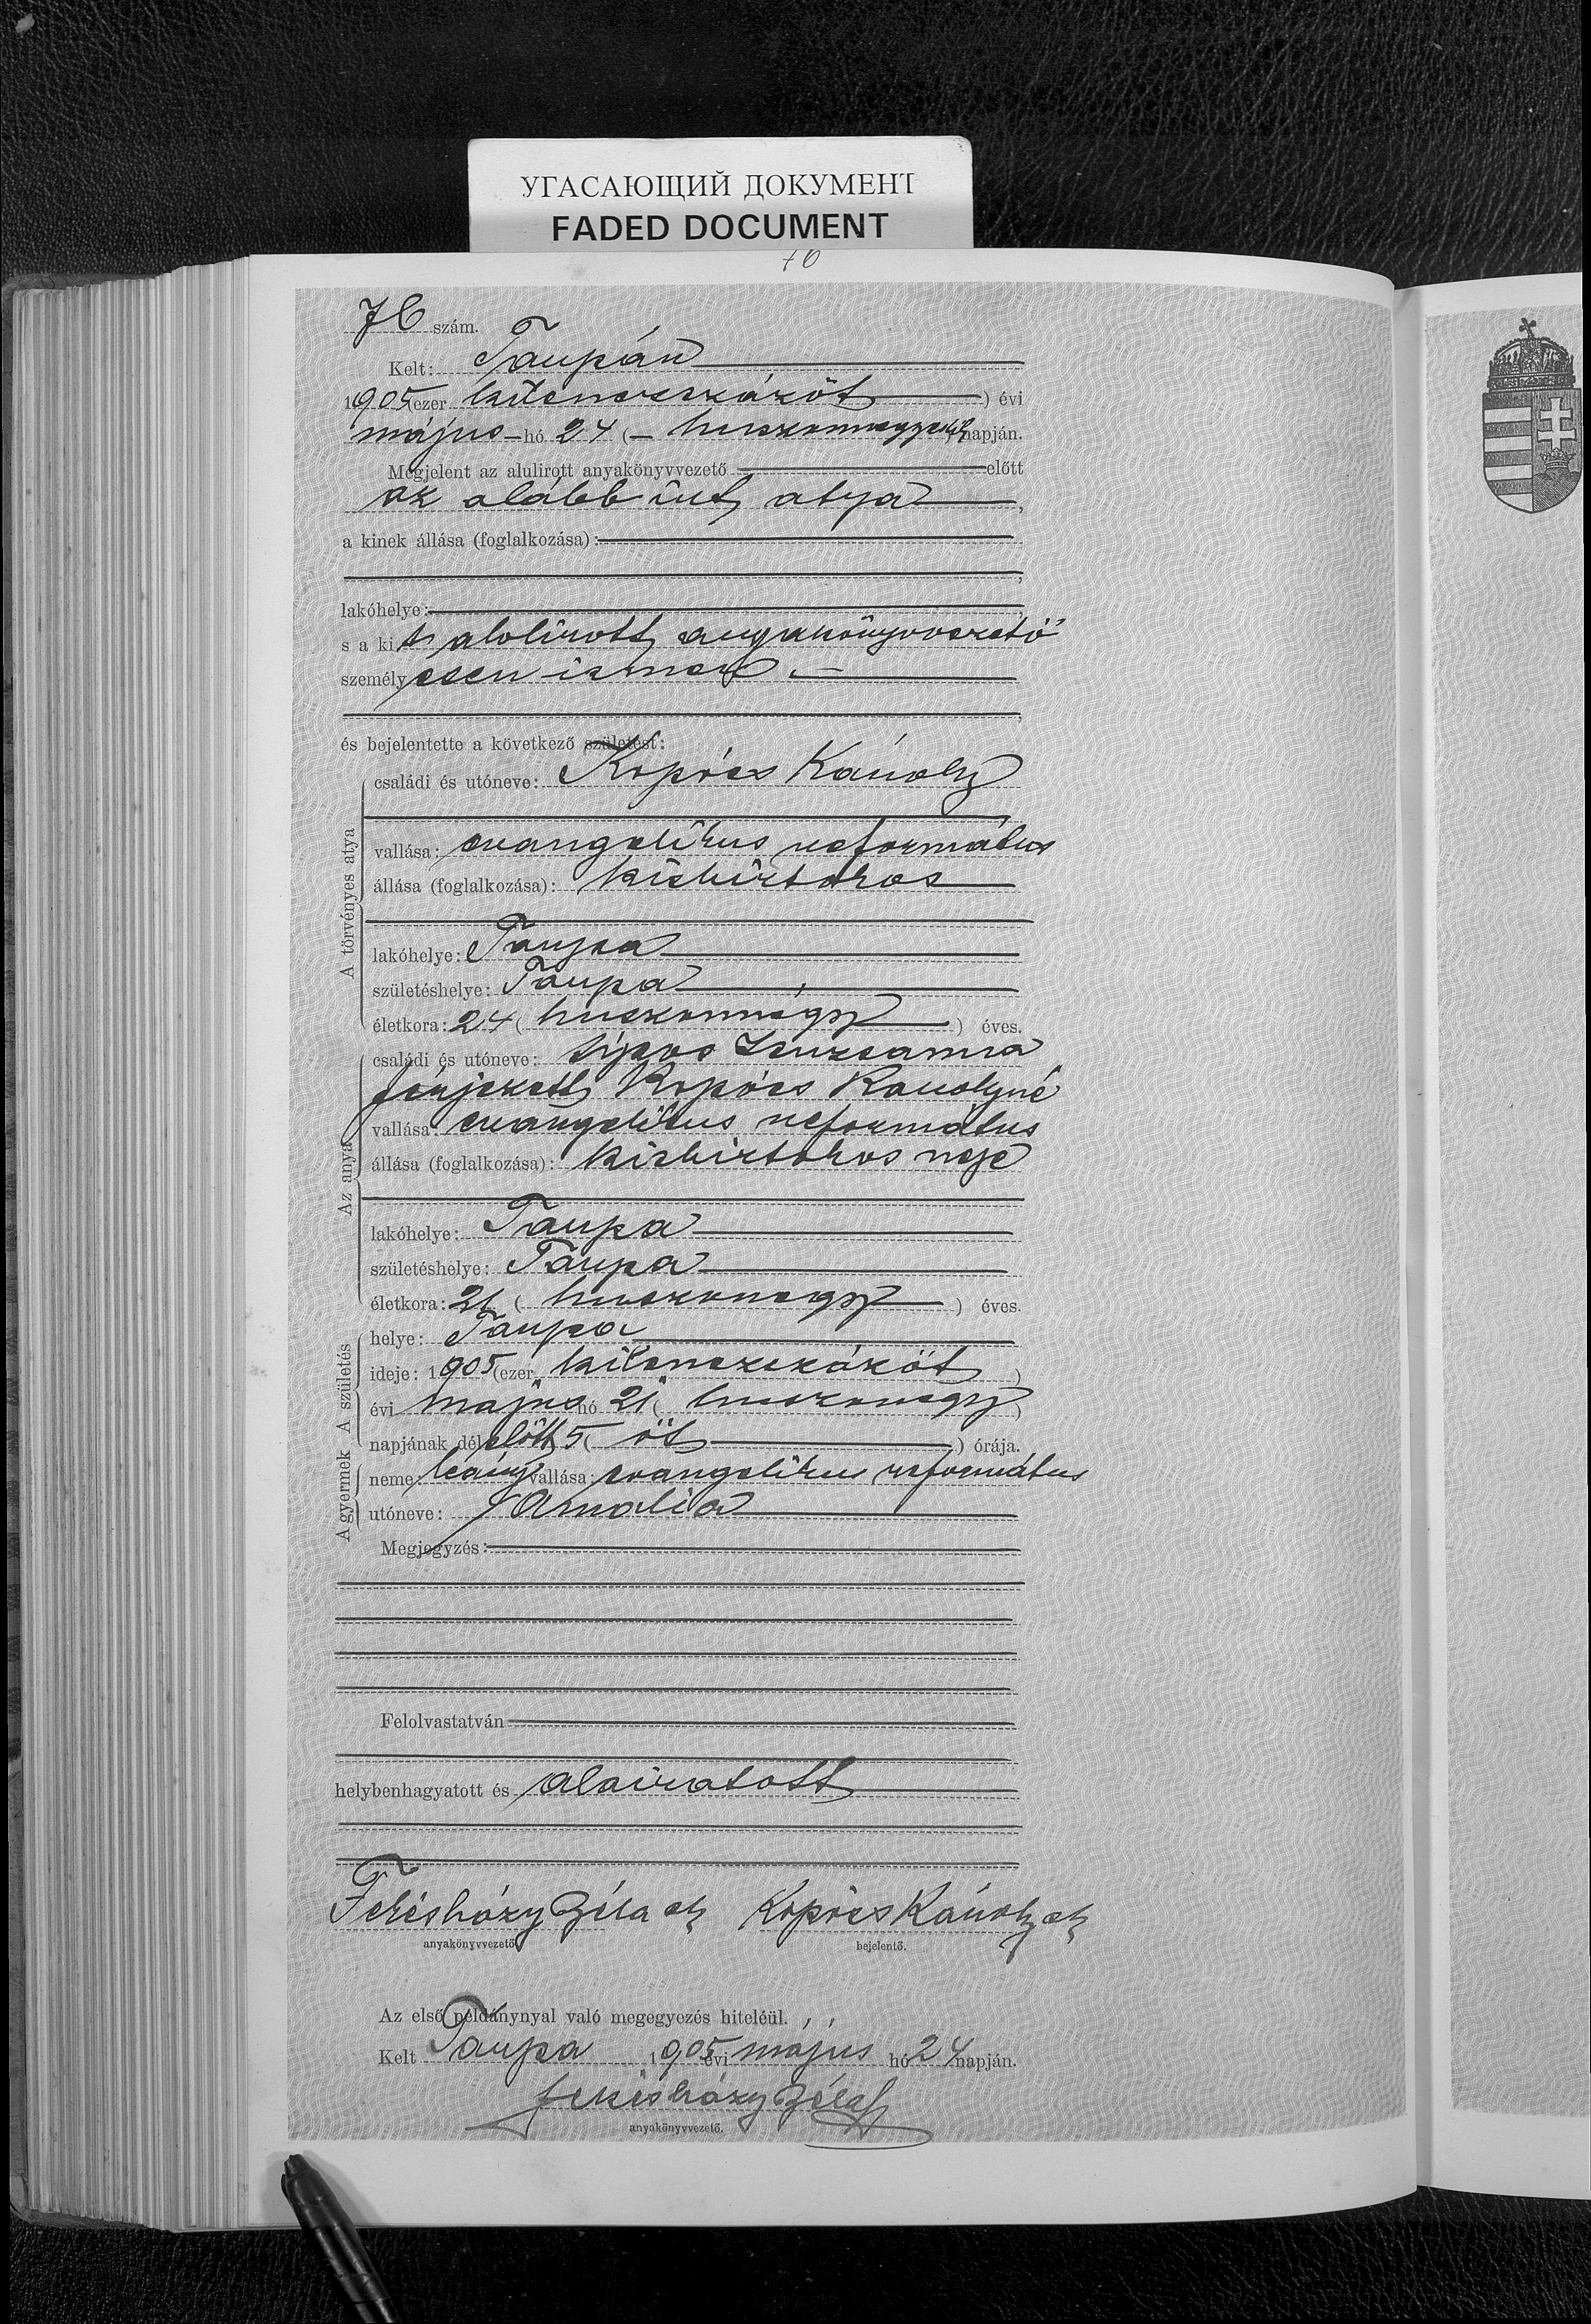 УГАСАЮЩИЙ ДОКУМЕНТ
FADED DOCUMENT
76
76 szám.
Kelt: Taupán
1905 (ezer kilenczszázöt) évi
május hó 24 (huszonnegyedik) napján.
Megjelent az alulirott anyakönyvvezető előtt
az alább irt atya,
a kinek állása (foglalkozása):
lakóhelye:
s a kit alolirott anyakönyvvezető
személyesen ismer.
és bejelentette a következő születést:
A törvényes atya
családi és utóneve: Kopócs Károly
vallása: evangelikus református
állása (foglalkozása): kisbirtokos
lakóhelye: Taupa
születéshelye: Taupa
életkora: 24 (huszonnégy) éves.
Az anya
családi és utóneve: Sipos Zsuzsanna
férjezett Kopócs Károlyné
vallása: evangelikus református
állása (foglalkozása): kisbirtokos neje
lakóhelye: Taupa
születéshelye: Taupa
életkora: 21 (huszonegy) éves.
A születés
helye: Taupa
ideje: 1905 (ezer kilenczszázöt)
évi május hó 21 (huszonegy)
napjának délelőtt 5 (öt) órája.
A gyermek
neme: leány vallása: evangelikus református
utóneve: Amalia
Megjegyzés:
Felolvastatván
helybenhagyatott és aláiratott
Fehésházy Béla sk Kopócs Károly sk
anyakönyvvezető bejelentő.
Az első példánynyal való megegyezés hiteléül.
Kelt Taupa 1905 évi május hó 24 napján.
Fehésházy Béla
anyakönyvvezető.